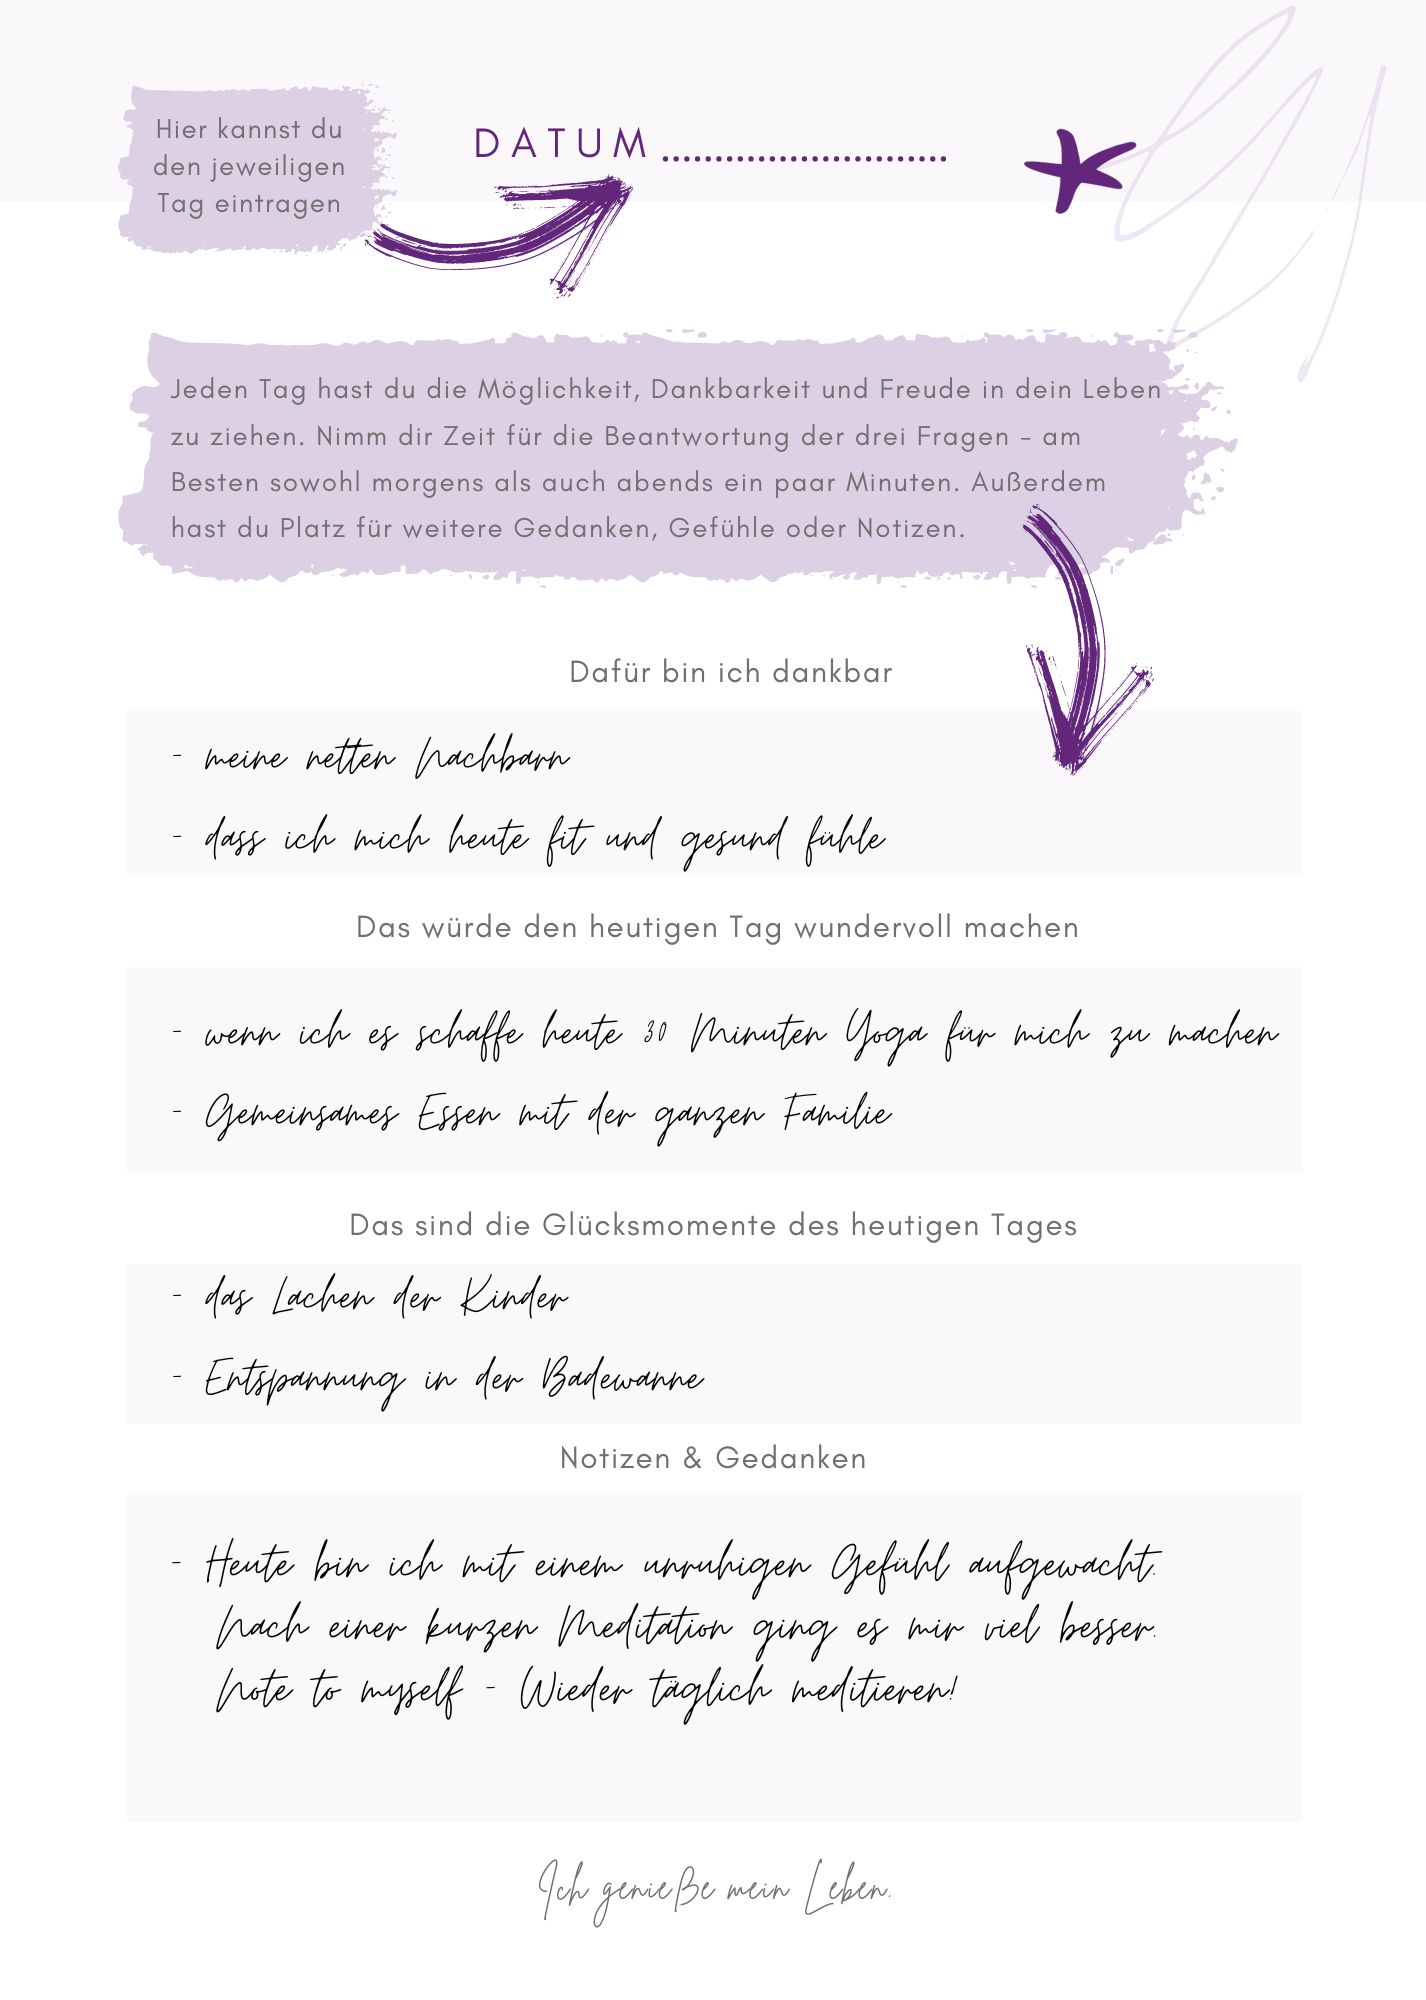 Hier kannst du
den jeweiligen
Tag eintragen
DATUM...........................
Jeden Tag hast du die Möglichkeit, Dankbarkeit und Freude in dein Leben
zu ziehen. Nimm dir Zeit für die Beantwortung der drei Fragen - am
Besten sowohl morgens als auch abends ein paar Minuten. Außerdem
hast du Platz für weitere Gedanken, Gefühle oder Notizen.
Dafür bin ich dankbar
- meine netten Nachbarn
- dass ich mich heute fit und gesund fühle
Das würde den heutigen Tag wundervoll machen
- wenn ich es schaffe heute 30 Minuten Yoga für mich zu machen
- Gemeinsames Essen mit der ganzen Familie
Das sind die Glücksmomente des heutigen Tages
- das Lachen der Kinder
- Entspannung in der Badewanne
Notizen & Gedanken
- Heute bin ich mit einem unruhigen Gefühl aufgewacht.
Nach einer kurzen Meditation ging es mir viel besser.
Note to myself - Wieder täglich meditieren!
Ich genieße mein Leben.